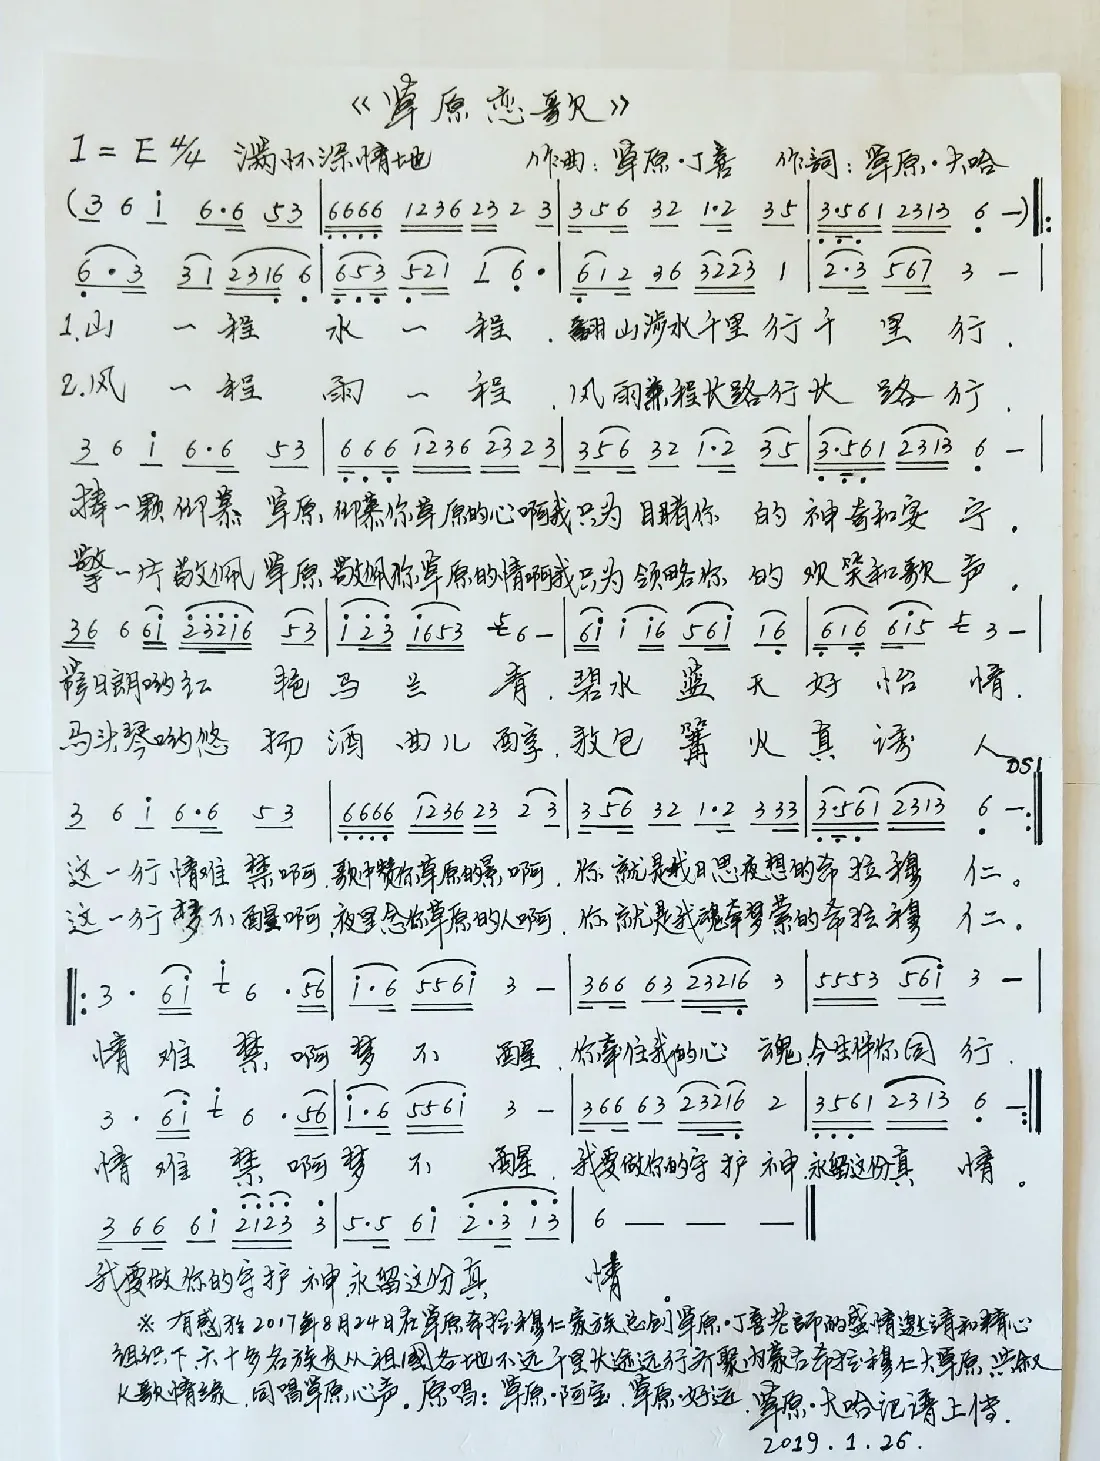 《草原恋歌》
1=E 4/4 满怀深情地 作曲:草原·丁喜 作詞:草原·大哈
(3 6 i 6·6 53 | 6666 1236 23 2 3 | 356 32 1·2 35 | 3·561 2313 6 —) ‖:
6·3 31 2316 6 | 653 521 1 6· | 612 36 3223 1 | 2·3 567 3 — |
1.山一程水一程.翻山涉水千里行千里行.
2.风一程雨一程.风雨兼程长路行长路行.
3 6 i 6·6 53 | 6 6 6 1236 23 2 3 | 356 32 1·2 35 | 3·561 2313 6 — |
捧一颗仰慕草原.仰慕你草原的心啊我只为目睹你的神奇和安宁.
擎一片敬佩草原.敬佩你草原的情啊我只为领略你的欢笑和歌声.
36 6 6i 23216 53 | i23 i653 5 6 — | 6i i i6 56i i6 | 6i6 6i5 5 3 — |
日朗哟红艳马兰青.碧水蓝天好怡情.
马头琴哟悠扬酒曲儿醇.敖包篝火真诱人
DS1
3 6 i 6·6 53 | 6666 1236 23 2 3 | 3 56 32 1·2 333 | 3·561 2313 6 — :‖
这一行情难禁啊.歌中赞你草原的景啊.你就是我日思夜想的希拉穆仁。
这一行梦不醒啊.夜里念你草原的人啊.你就是我魂牵梦萦的希拉穆仁。
‖: 3· 6i i 6 ·56 | i·6 556i 3 — | 366 63 23216 3 | 5553 56i 3 — |
情难禁啊梦不醒.你牵住我的心魂.今生伴你同行.
3· 6i i 6 ·56 | i·6 556i 3 — | 366 63 23216 2 | 3561 2313 6 — :‖
情难禁啊梦不醒.我要做你的守护神.永留这份真情。
3 66 6i 2123 3 | 5·5 6i 2·3 i3 | 6 — — — ‖
我要做你的守护神永留这份真情。
※ 有感於2017年8月24日在草原希拉穆仁家族总创草原·丁喜老師的盛情邀請和精心
组织下.六十多名族友从祖國各地不远千里长途远行齐聚内蒙古希拉穆仁大草原.共叙
歌情缘.同唱草原心声。原唱:草原·阿宝.草原·好远.草原·大哈记谱上传.
2019.1.26.